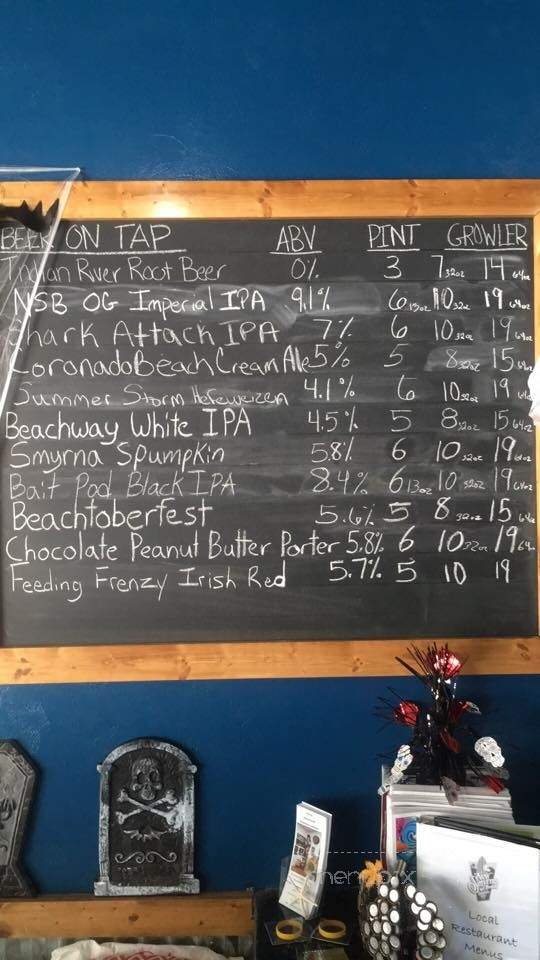 BEER ON TAP ABV PINT GROWLER
Indian River Root Beer 0% 3 7 32oz 14 64oz
NSB OG Imperial IPA 9.1% 6 13oz 10 32oz 19 64oz
Shark Attack IPA 7% 6 10 32oz 19 64oz
Coronado Beach Cream Ale 5% 5 8 32oz 15 64oz
Summer Storm Hefeweizen 4.1% 6 10 32oz 19 64oz
Beachway White IPA 4.5% 5 8 32oz 15 64oz
Smyrna Spumpkin 5.8% 6 10 32oz 19 64oz
Bait Pod Black IPA 8.4% 6 13oz 10 32oz 19 64oz
Beachtoberfest 5.6% 5 8 32oz 15 64oz
Chocolate Peanut Butter Porter 5.8% 6 10 32oz 19 64oz
Feeding Frenzy Irish Red 5.7% 5 10 19
Local
Restaurant
Menus